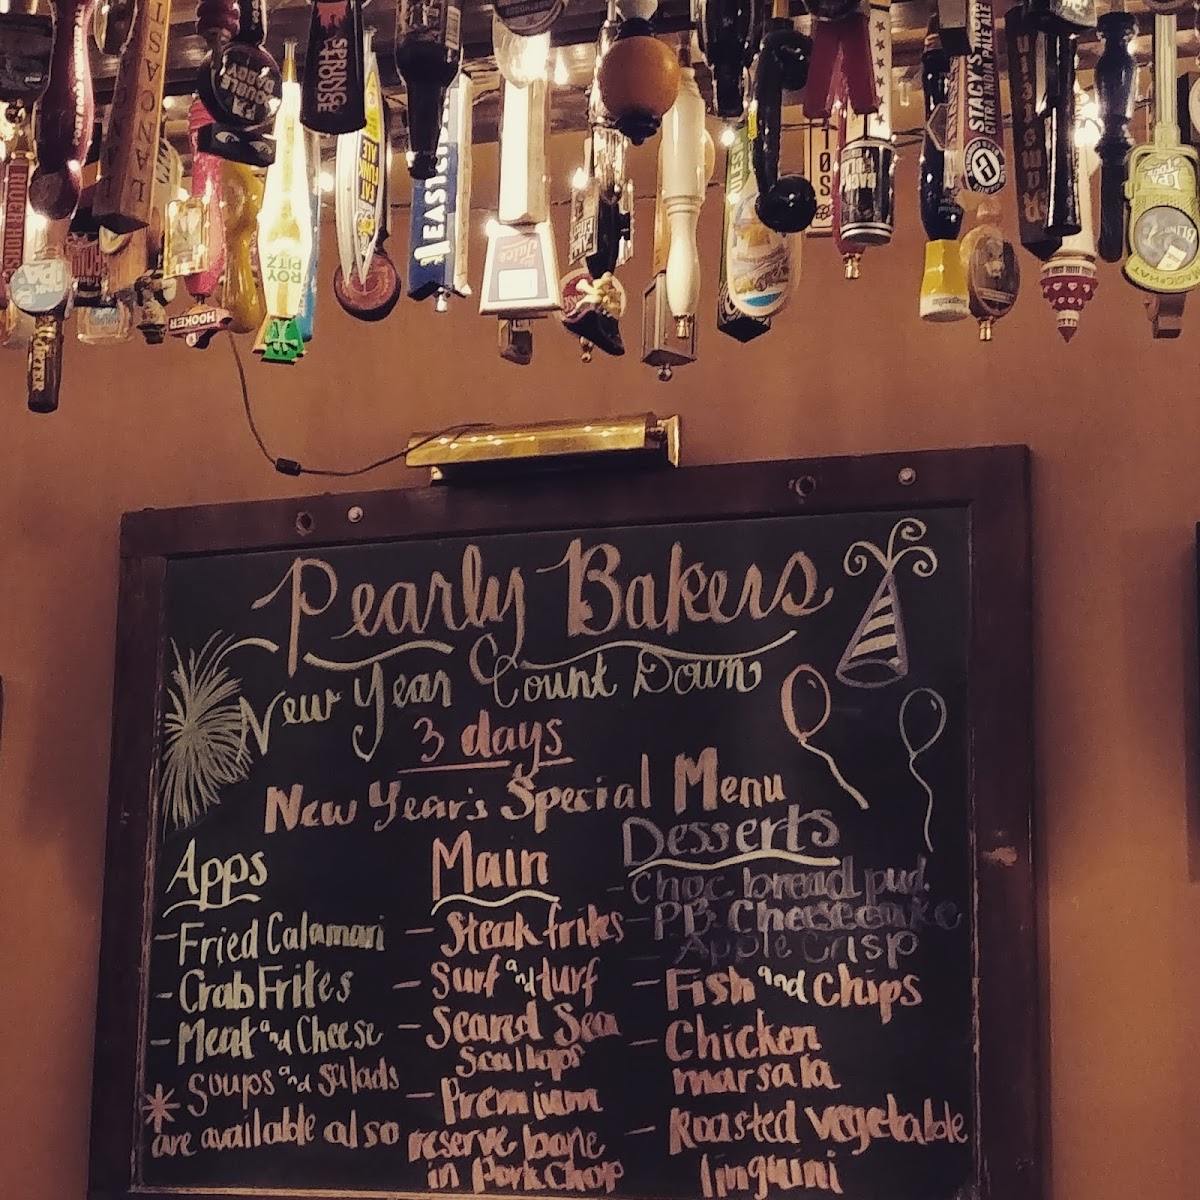 SPRING
HOUSE
LEASTIC
STACY'S
CITRA INDIA PALE ALE
ROY
PITZ
HOOKER
PORTER
Juice
Pearly Bakers
New Year Count Down
3 days
New Year's Special Menu
Apps
- Fried Calamari
- Crab Frites
- Meat and Cheese
* Soups and Salads
are available also
Main
- Steak frites
- Surf and turf
- Seared Sea
Scallops
- Premium
reserve bone
in Pork Chop
Desserts
- Choc. bread pud.
- P.B. Cheesecake
- Apple Crisp
- Fish and Chips
- Chicken
marsala
- Roasted vegetable
linguini